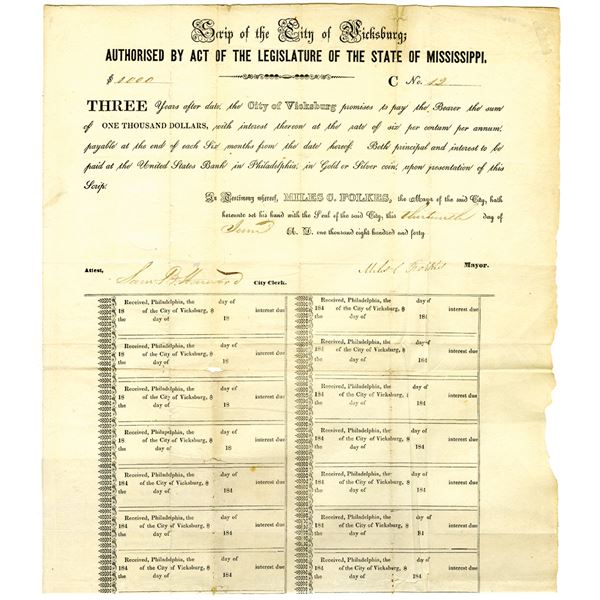 Scrip of the City of Vicksburg;
AUTHORISED BY ACT OF THE LEGISLATURE OF THE STATE OF MISSISSIPPI.
$ 1000 C No. 12
THREE Years after date, the City of Vicksburg promises to pay the Bearer the sum
of ONE THOUSAND DOLLARS, with interest thereon at the rate of six per centum per annum,
payable at the end of each Six months from the date hereof. Both principal and interest to be
paid at the United States Bank in Philadelphia, in Gold or Silver coin, upon presentation of this
Scrip.
In Testimony whereof, MILES C. FOLKES, the Mayor of the said City, hath
hereunto set his hand with the Seal of the said City, this thirteenth day of
June A. D. one thousand eight hundred and forty
Attest, City Clerk. Miles C Folkes Mayor.
Received, Philadelphia, the day of
18 of the City of Vicksburg, $ interest due
the day of 18
Received, Philadelphia, the day of
184 of the City of Vicksburg, $ interest due
the day of 184
Received, Philadelphia, the day of
18 of the City of Vicksburg, $ interest due
the day of 18
Received, Philadelphia, the day of
184 of the City of Vicksburg, $ interest due
the day of 184
Received, Philadelphia, the day of
18 of the City of Vicksburg, $ interest due
the day of 18
Received, Philadelphia, the day of
184 of the City of Vicksburg, $ interest due
the day of 184
Received, Philadelphia, the day of
18 of the City of Vicksburg, $ interest due
the day of 18
Received, Philadelphia, the day of
184 of the City of Vicksburg, $ interest due
the day of 184
Received, Philadelphia, the day of
184 of the City of Vicksburg, $ interest due
the day of 184
Received, Philadelphia, the day of
184 of the City of Vicksburg, $ interest due
the day of 184
Received, Philadelphia, the day of
184 of the City of Vicksburg, $ interest due
the day of 184
Received, Philadelphia, the day of
184 of the City of Vicksburg, $ interest due
the day of 184
Received, Philadelphia, the day of
184 of the City of Vicksburg, $ interest due
the day of 184
Received, Philadelphia, the day of
184 of the City of Vicksburg, $ interest due
the day of 184